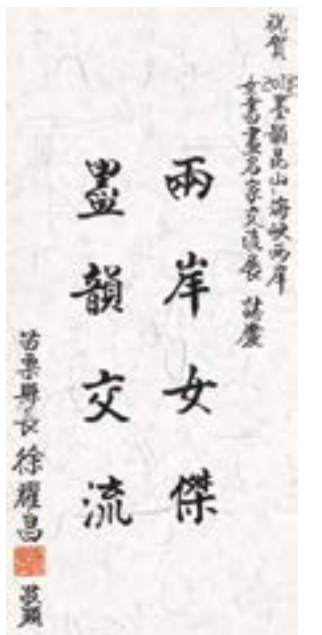 祝賀
2018墨韻崑山·海峽兩岸
女書畫名家交流展 誌慶
兩岸女傑
墨韻交流
苗栗縣長徐耀昌 敬題